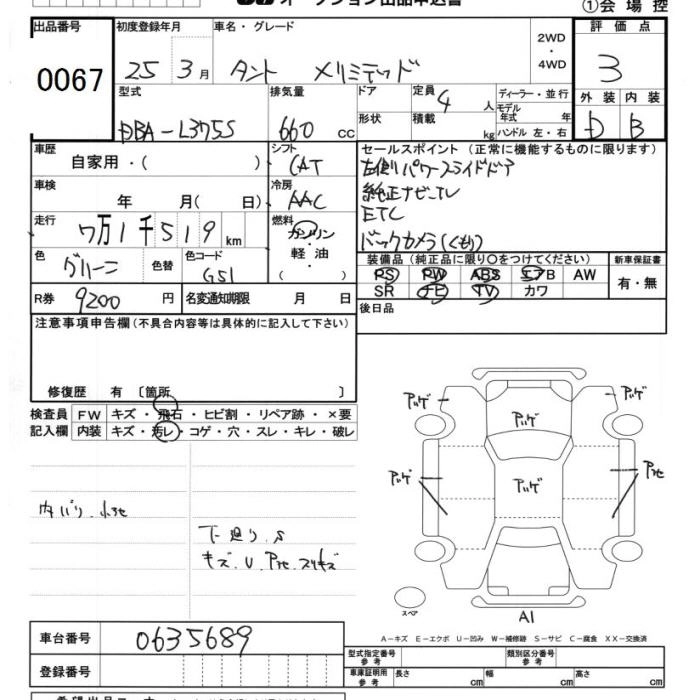 オークション出品申込書
①会場控
出品番号 初度登録年月 車名・グレード 2WD・4WD 評価点
0067 25 3月 タント メリミテッド 3
型式 排気量 ドア 定員 4人 ディーラー・並行 外装 内装
DBA-L375S 660 cc 形状 積載 kg モデル年式 年 ハンドル 左・右 D B
車歴 自家用・( ) シフト CAT セールスポイント (正常に機能するものに限ります)
左側パワースライドドア
車検 年 月( 日) 冷房 AAC 純正ナビ-TV
ETC
走行 7万1千519km 燃料 ガソリン・軽油・( ) バックカメラ(くもり)
色 グリーン 色替 色コード G51 装備品 (純正品に限り○をつけてください) 新車保証書
PS PW ABS エアB AW 有・無
R券 9200円 名変通知期限 月 日 SR ナビ TV カワ
注意事項申告欄(不具合内容等は具体的に記入して下さい) 後日品
修復歴 有 〔箇所 〕
検査員 FW キズ・飛石・ヒビ割・リペア跡・×要
記入欄 内装 キズ・汚レ・コゲ・穴・スレ・キレ・破レ
アリゲ アリゲ アリゲ
アリゲ アリゲ Pセ
内バリ.小キセ
下廻り.S
キズ.U.Pセ.スリキズ
スペア
A1
A-キズ E-エクボ U-凹み W-補修跡 S-サビ C-腐食 XX-交換済
車台番号 0635689
型式指定番号 参考 類別区分番号 参考
登録番号 車庫証明用 参考 長さ cm 幅 cm 高さ cm